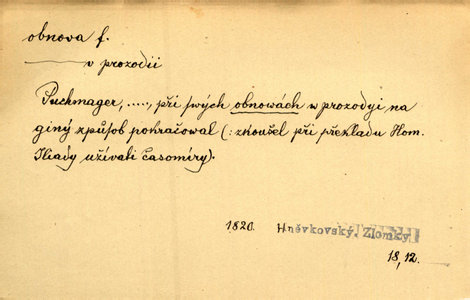 obnova f.
——— v prozodii
Puchmager, ....., při swých obnowách w prozodyi na
giný způsob pokračowal (: zkoušel při překladu Hom.
Iliady užívati časomíry).
1820. Hněvkovský, Zlomky
18, 12.